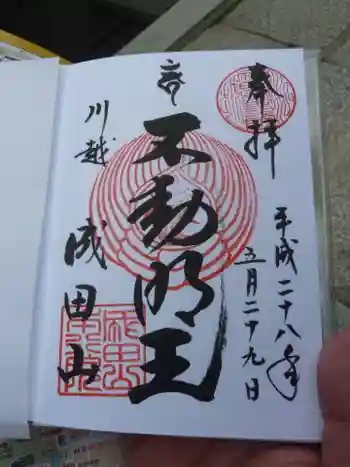 奉拝
平成二十八年
五月二十九日
不動明王
川越
成田山